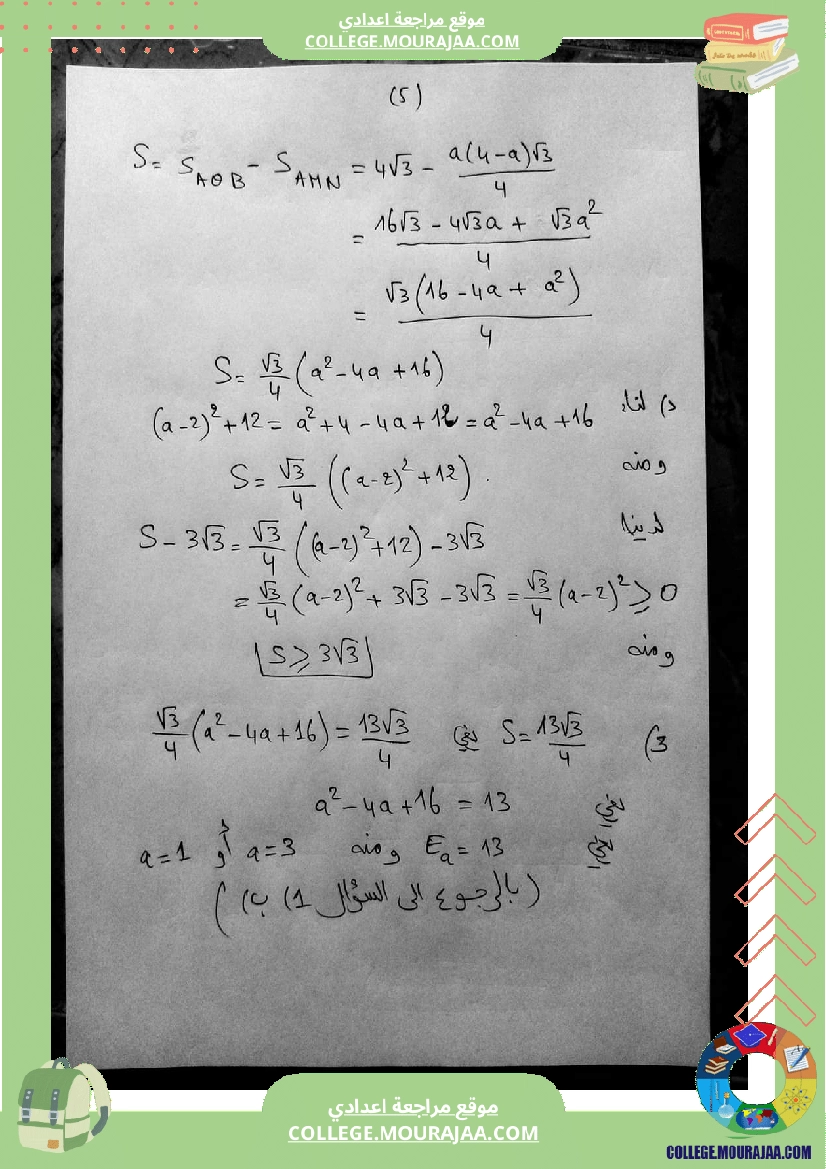 موقع مراجعة اعدادي
COLLEGE.MOURAJAA.COM
(5)
S = S_AOB - S_AMN = 4√3 - a(4-a)√3 / 4
= 16√3 - 4√3a + √3a² / 4
= √3(16 - 4a + a²) / 4
S = √3/4 (a² - 4a + 16)
د) لنا:
(a-2)² + 12 = a² + 4 - 4a + 12 = a² - 4a + 16
ومنه S = √3/4 ((a-2)² + 12).
لدينا S - 3√3 = √3/4 ((a-2)² + 12) - 3√3
= √3/4 (a-2)² + 3√3 - 3√3 = √3/4 (a-2)² ⩾ 0
ومنه S ⩾ 3√3
3) S = 13√3/4 يعني √3/4 (a² - 4a + 16) = 13√3/4
يعني a² - 4a + 16 = 13
يعني Ea = 13 ومنه a = 3 أو a = 1
(بالرجوع الى السؤال 1) ب))
موقع مراجعة اعدادي
COLLEGE.MOURAJAA.COM
COLLEGE.MOURAJAA.COM